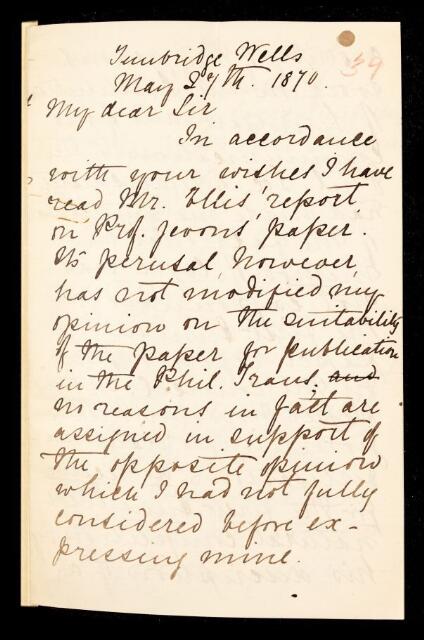 39
Tunbridge Wells
May 27th. 1870.
My dear Sir
In accordance
with your wishes I have
read Mr. Ellis' report
on Prof. Jevons' paper.
Its perusal, however,
has not modified my
opinion on the suitability
of the paper for publication
in the Phil. Trans; and
no reasons in fact are
assigned in support of
the opposite opinion
which I had not fully
considered before ex-
pressing mine.